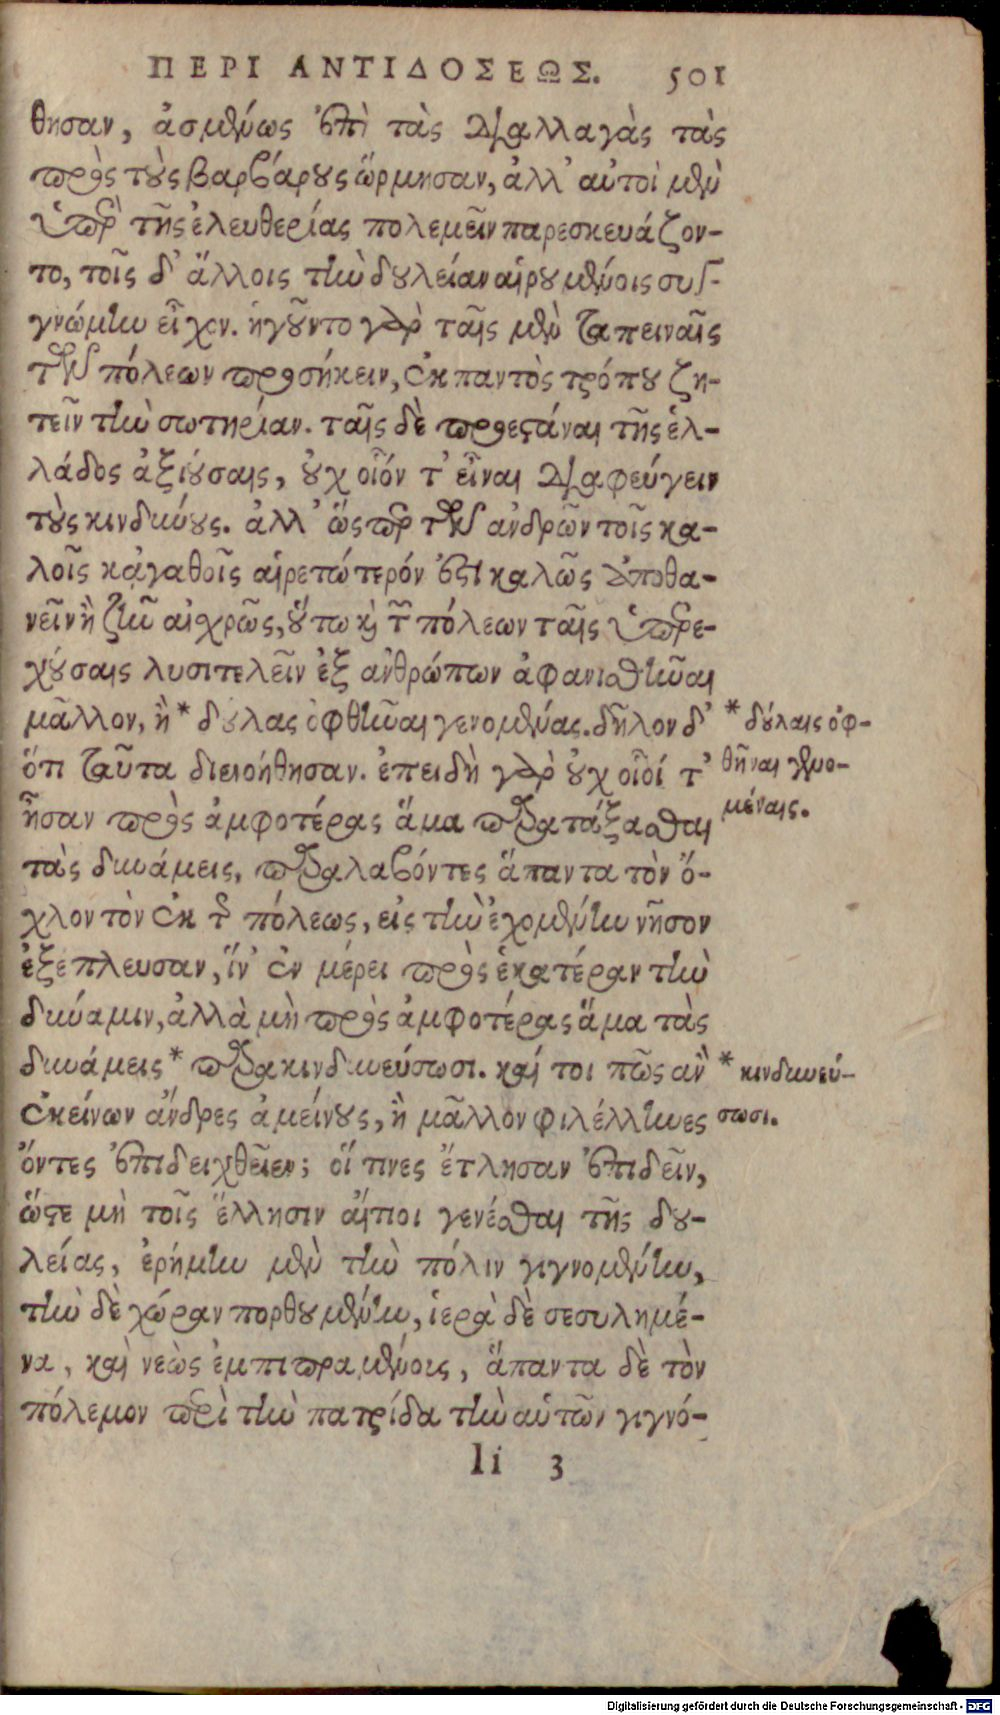 ΠΕΡΙ ΑΝΤΙΔΟΣΕΩΣ. 501
θησαν, ἀσμένως ἐπὶ τὰς διαλλαγὰς τὰς
πρὸς τοὺς βαρβάρους ὥρμησαν, ἀλλ' αὐτοὶ μὲν
ὑπὲρ τῆς ἐλευθερίας πολεμεῖν παρεσκευάζον-
το, τοῖς δ' ἄλλοις τὴν δουλείαν αἱρουμένοις συγ-
γνώμην εἶχον. ἡγοῦντο γὰρ ταῖς μὲν ταπειναῖς
τῶν πόλεων προσήκειν, ἐκ παντὸς τρόπου ζη-
τεῖν τὴν σωτηρίαν. ταῖς δὲ προεστάναι τῆς ἑλ-
λάδος ἀξιούσαις, οὐχ οἷόν τ' εἶναι διαφεύγειν
τοὺς κινδύνους. ἀλλ' ὥσπερ τῶν ἀνδρῶν τοῖς κα-
λοῖς κἀγαθοῖς αἱρετώτερόν ἐστι καλῶς ἀποθα-
νεῖν ἢ ζῆν αἰχρῶς, οὕτω καὶ τῶν πόλεων ταῖς ὑπερε-
χούσαις λυσιτελεῖν ἐξ ἀνθρώπων ἀφανισθῆναι
μᾶλλον, ἢ * δούλας ὀφθῆναι γενομένας. δῆλον δ'
ὅτι ταῦτα διενοήθησαν. ἐπειδὴ γὰρ οὐχ οἷοί τ'
ἦσαν πρὸς ἀμφοτέρας ἅμα παρατάξασθαι
τὰς δυνάμεις, παραλαβόντες ἅπαντα τὸν ὄ-
χλον τὸν ἐκ τῆς πόλεως, εἰς τὴν ἐχομένην νῆσον
ἐξέπλευσαν, ἵν' ἐν μέρει πρὸς ἑκατέραν τὴν
δύναμιν, ἀλλὰ μὴ πρὸς ἀμφοτέρας ἅμα τὰς
δυνάμεις * παρακινδυνεύσωσι. καί τοι πῶς ἂν
ἐκείνων ἄνδρες ἀμείνους, ἢ μᾶλλον φιλέλληνες
ὄντες ἐπιδειχθεῖεν; οἵ τινες ἔτλησαν ἐπιδεῖν,
ὥστε μὴ τοῖς ἕλλησιν αἴτιοι γενέσθαι τῆς δου-
λείας, ἐρήμην μὲν τὴν πόλιν γιγνομένην,
τὴν δὲ χώραν πορθουμένην, ἱερὰ δὲ σεσυλημέ-
να, καὶ νεὼς ἐμπιπραμένοις, ἅπαντα δὲ τὸν
πόλεμον περὶ τὴν πατρίδα τὴν αὑτῶν γιγνό-
Ii 3
* δούλαις ὀφ-
θῆναι γενο-
μέναις.
* κινδυνεύ-
σωσι.
Digitalisierung gefördert durch die Deutsche Forschungsgemeinschaft - DFG